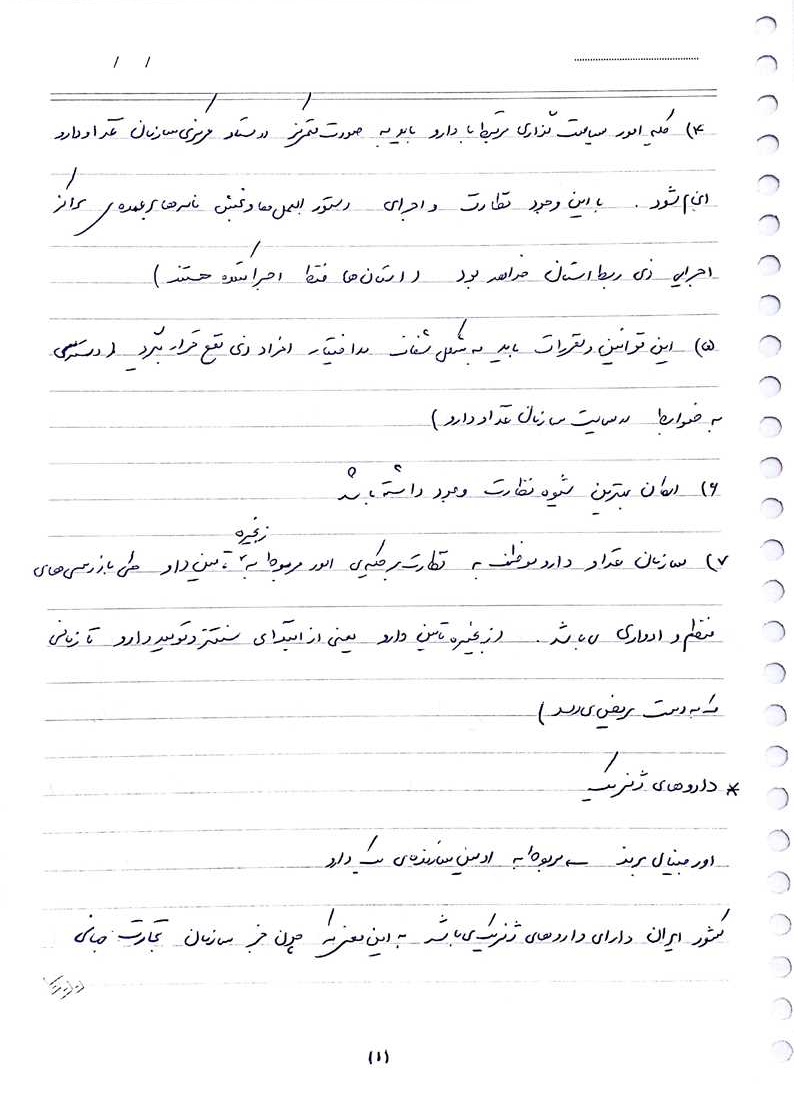 / /
۴) کلیه امور سیاست گذاری مرتبط با دارو باید به صورت متمرکز در ستاد مرکزی سازمان غذا و دارو
انجام شود. با این وجود نظارت و اجرای دستورالعمل ها و بخش نامه ها بر عهده ی مراکز
اجرایی ذی ربط استان خواهد بود (استان ها فقط اجرا کننده هستند)
۵) این قوانین و مقررات باید به شکل شفاف در اختیار افراد ذی نفع قرار بگیرد (دسترسی
به ضوابط در سایت سازمان غذا و دارو)
۶) امکان بهترین شیوه نظارت وجود داشته باشد
۷) سازمان غذا و دارو موظف به نظارت بر کلیه ی امور مربوط به زنجیره تامین دارو طی بازرسی های
منظم و ادواری می باشد. (زنجیره تامین دارو یعنی از ابتدای سنتز و تولید دارو تا زمانی
که به دست مریض می رسد)
* داروهای ژنریک
اورجینال برند ← مربوط به اولین سازنده ی یک دارو
کشور ایران دارای داروهای ژنریک می باشد به این معنی که چون جز سازمان تجارت جهانی
(۱)